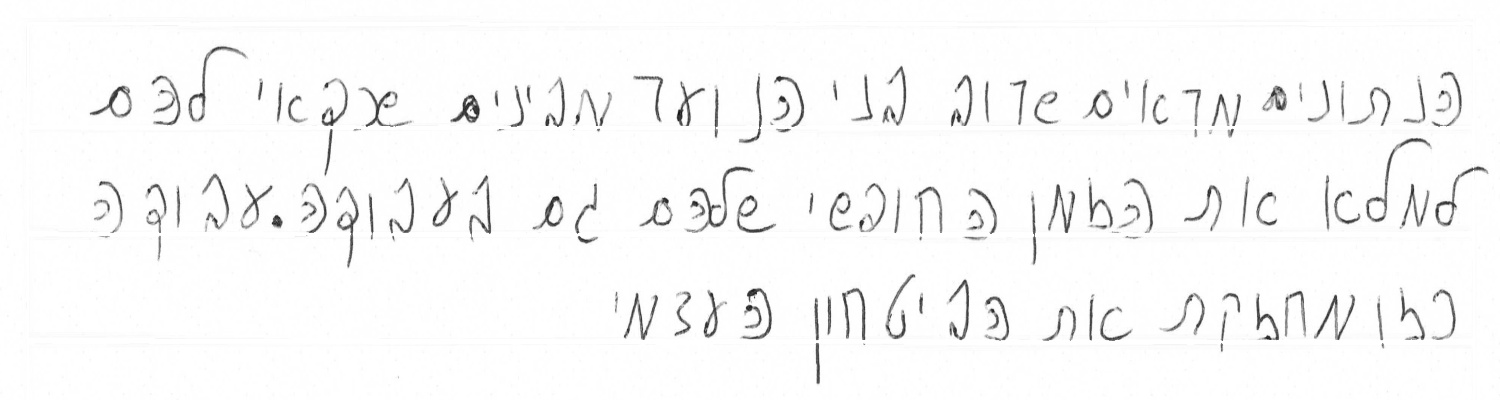 הנתונים מראים שרוב בני הנוער מבינים שכדאי להם
למלא את הזמן החופשי שלהם גם בעבודה. עבודה
כזו מחזקת את הביטחון העצמי